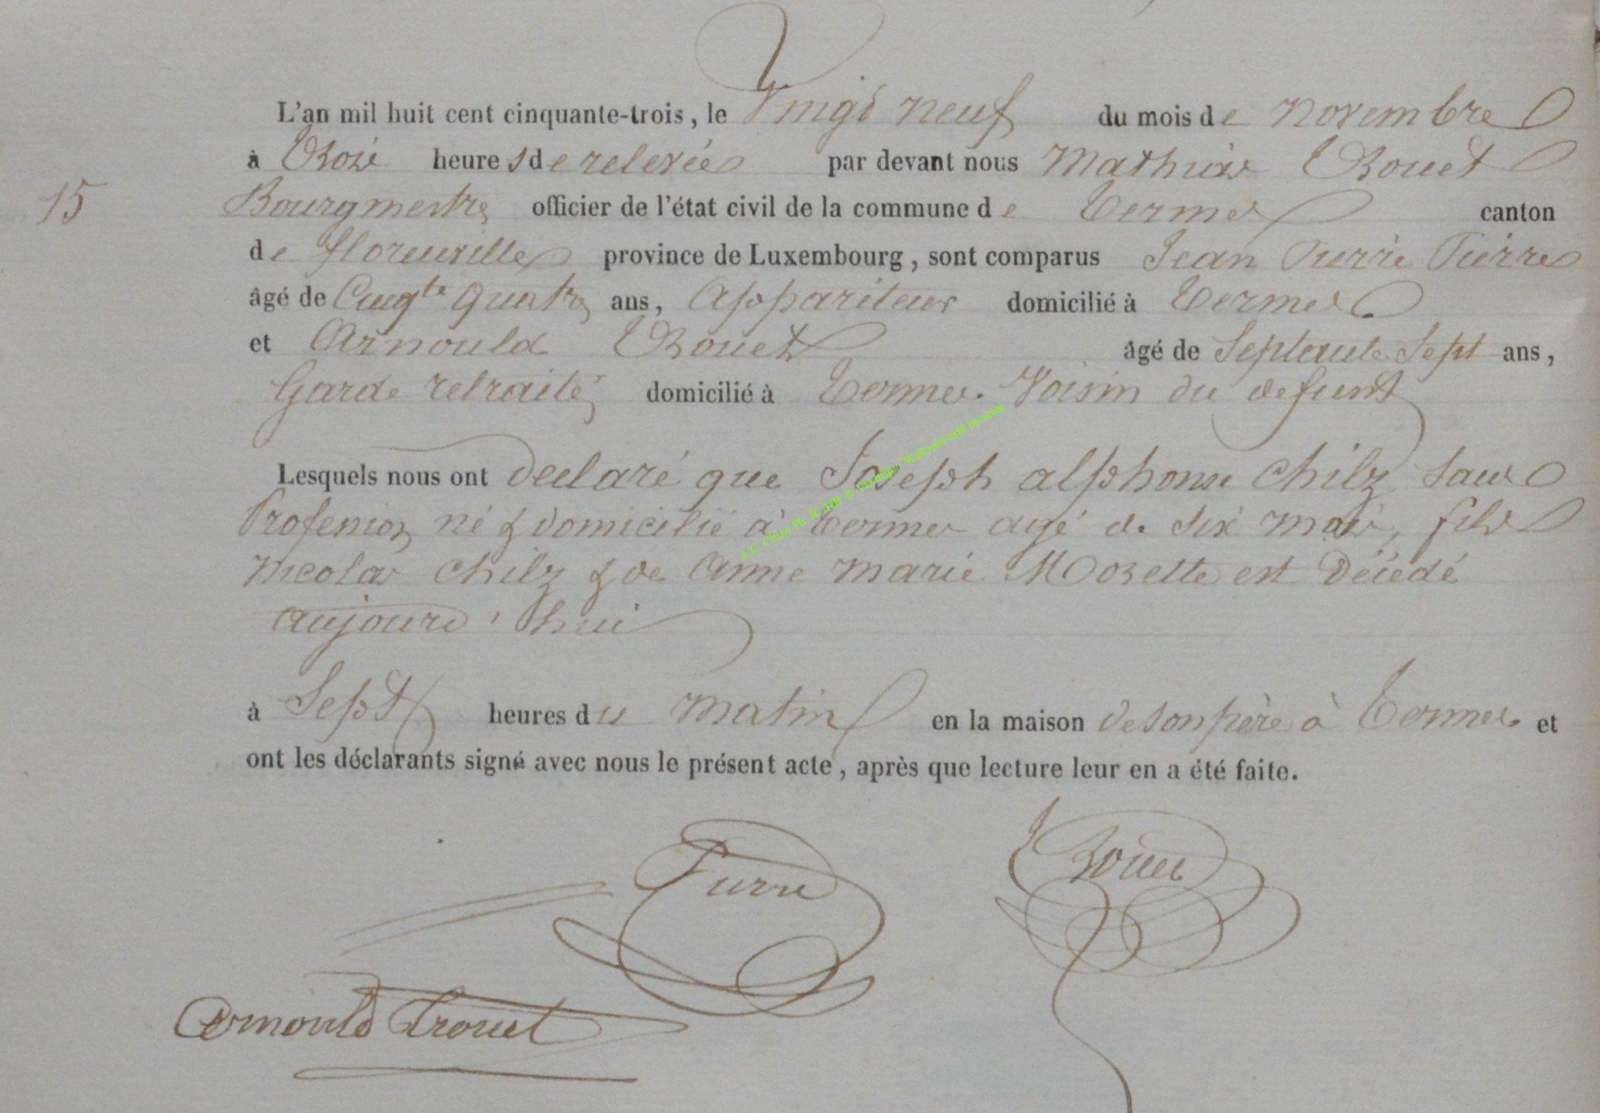 L'an mil huit cent cinquante-trois, le Vingt neuf du mois de novembre
à Trois heures de relevée par devant nous Mathias Trouet
15 Bourgmestre officier de l'état civil de la commune de Termes canton
de florenville province de Luxembourg, sont comparus Jean Pierre Pierre
âgé de Cinqte quatre ans, Appariteur domicilié à Termes
et Arnould Trouet âgé de Septante Sept ans,
Garde retraité domicilié à Termes. Voisin du defunt
Lesquels nous ont declaré que Joseph alphonse Chilz sans
Profession né & domicilié à Termes agé de Six mois, fils
Nicolas Chilz & de Anne Marie Mozette est Décédé
aujourd'hui
à Sept heures du matin en la maison de son père à Termes et
ont les déclarants signé avec nous le présent acte, après que lecture leur en a été faite.
Pierre Trouet
Arnould Trouet